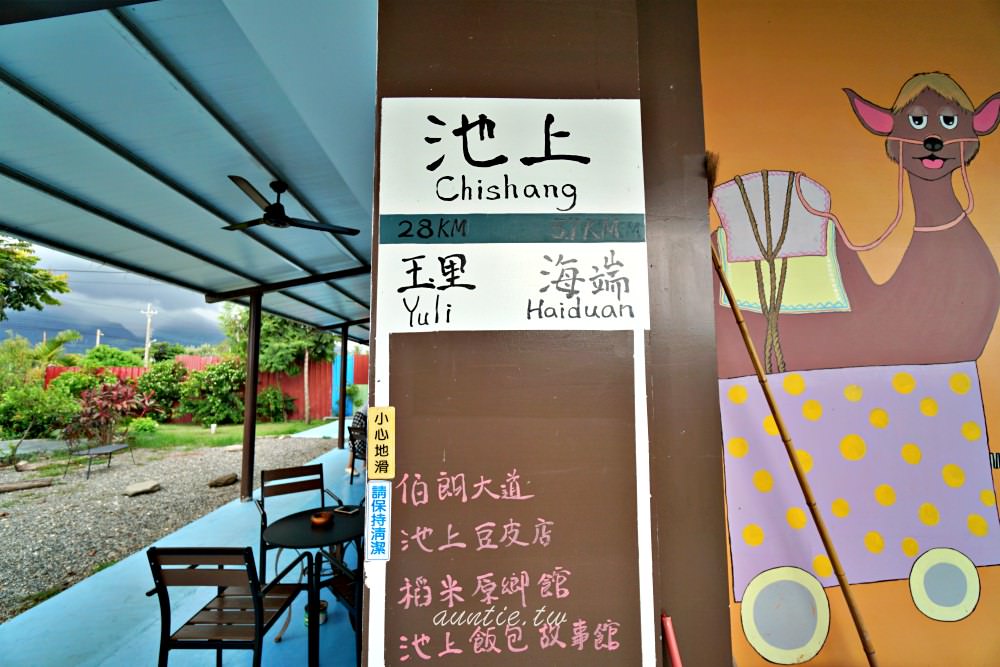 池上
Chishang
28KM 37KM
玉里 海端
Yuli Haiduan
小心地滑
請保持清潔
伯朗大道
池上豆皮店
稻米原鄉館
auntie.tw
池上飯包故事館